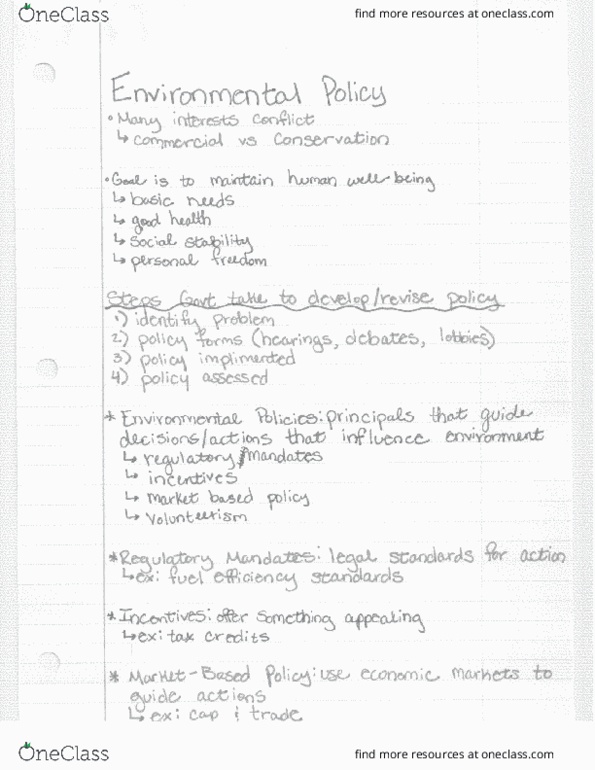 OneClass
find more resources at oneclass.com
Environmental Policy
• Many interests conflict
↳ commercial vs conservation
• Goal is to maintain human well-being
↳ basic needs
↳ good health
↳ social stability
↳ personal freedom
Steps Govt take to develop/revise policy
1) identify problem
2) policy forms (hearings, debates, lobbies)
3) policy implimented
4) policy assessed
* Environmental Policies: principals that guide
decisions/actions that influence environment
↳ regulatory mandates
↳ incentives
↳ market based policy
↳ volunteerism
* Regulatory Mandates: legal standards for action
↳ ex: fuel efficiency standards
* Incentives: offer something appealing
↳ ex: tax credits
* Market-Based Policy: use economic markets to
guide actions
↳ ex: cap & trade
OneClass
find more resources at oneclass.com